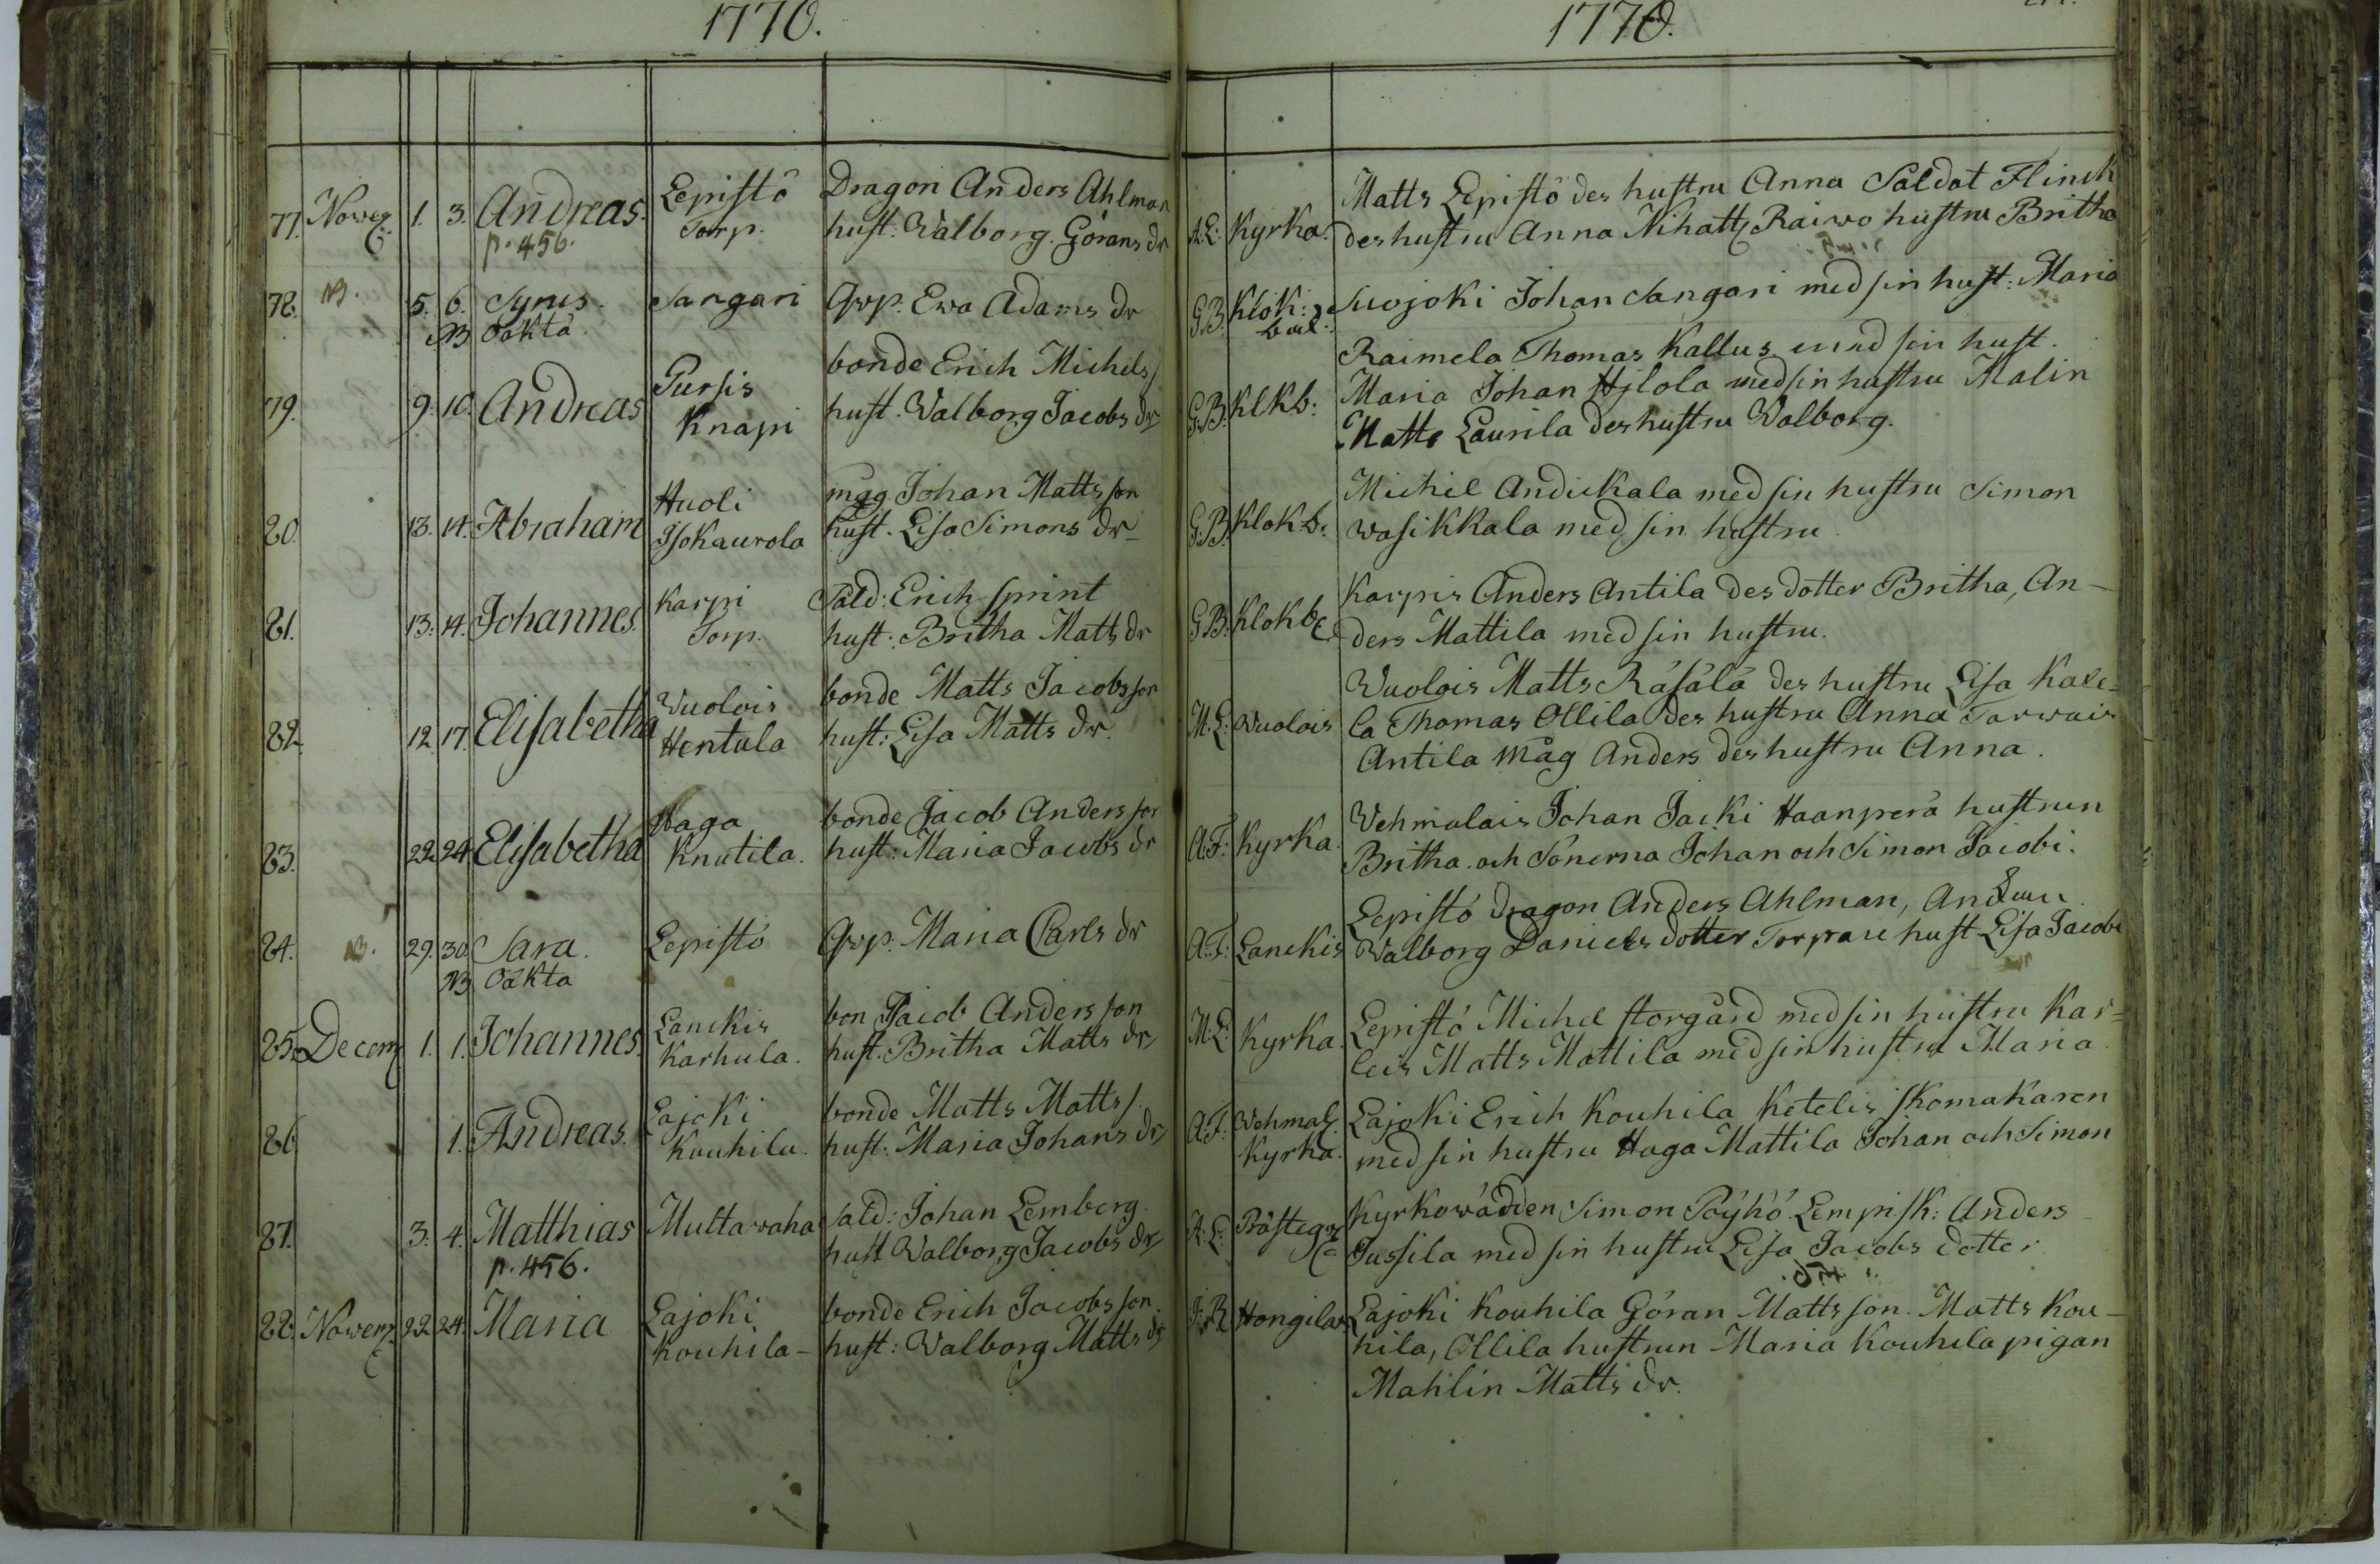 1770.
1770.
77. Novem 1. 3. Andreas. Lepistö Dragon Anders Ahlman A.L: Kyrka. Matts Lepistö des hustru Anna Saldat Flinck
p. 456. Torp. hust. Walborg. Görans dr des hustru Anna Nihatt Raiwo hustru Britha
78. NB. 5. 6. Agnes. Sangari Qvp. Ewa Adams dr G.B. Klok: Suojoki Johan Sangari med sin hust: Maria
NB Oäkta. bul:
79. 9. 10. Andreas Pursis bonde Erich Michels G.B. Klkb: Raimela Thomas Kallus med sin hust.
Knapi hust. Walborg Jacobs dr Maria Johan Hylola med sin hustru Malin
Matts Laurila des hustru Walborg.
80. 13. 14. Abraham Huoli måg. Johan Matts son G.B. Klokb: Michel Andickala med sin hustru Simon
Isokaurola hust. Lisa Simons dr wasikkala med sin hustru
81. 13. 14. Johannes. Karpi Sald: Erich Sprint G.B. Klokb Karpis Anders Antila des dotter Britha, An-
Torp. hust: Britha Matts dr ders Mattila med sin hustru.
82. 12. 17. Elisabetha Wuolois bonde Matts Jacobsson M.L: Wuolois Wuolois Matts Räsälä des hustru Lisa Kale-
Hentula hust: Lisa Matts dr. la Thomas Ollila des hustru Anna Tarwais
Antila måg Anders des hustru Anna.
83. 22. 24. Elisabetha Haga bonde Jacob Anders son A.F: Kyrka. Vehmalais Johan Jacki Haanperä hustrun
Knutila. hust: Maria Jacobs dr Britha. och Sönerna Johan och Simon Jacobi.
84. NB. 29. 30. Sara. Lepistö Qvp. Maria Carls dr A.F: Lanckis Lepistö dragon Anders Ahlman,
NB Oäkta Walborg Daniels dotter Torpare hust Lisa Jacobs
85. Decem 1. 1. Johannes. Lanckis bon Jacob Anders son M.L: Kyrka. Lepistö Michel Storgård med sin hustru Kar-
Karhula. hust. Britha Matts dr leis Matts Mattila med sin hustru Maria.
86. 1. Andreas. Lajoki bonde Matts Matts s. A.F: Vehmal. Lajoki Erich Kouhila Ketelis skomakaren
Kouhila. hust: Maria Johans dr Kyrka. med sin hustru Haga Mattila Johan och Simon
87. 3. 4. Matthias Multawaha Sald: Johan Lemberg. A.L: Prästeg Kyrkowärden Simon Pöyhö. Lempisk: Anders
p. 456. hust Walborg Jacobs dr Jussila med sin hustru Lisa Jacobs dotter
88. Novem 22. 24. Maria Lajoki bonde Erich Jacobs son. Hongilas Lajoki Kouhila Göran Matts son. Matts Kou-
Kouhila- hust: Walborg Matts dr hila, Ollila hustrun Maria Kouhila pigan
Mahlin Matts dr.